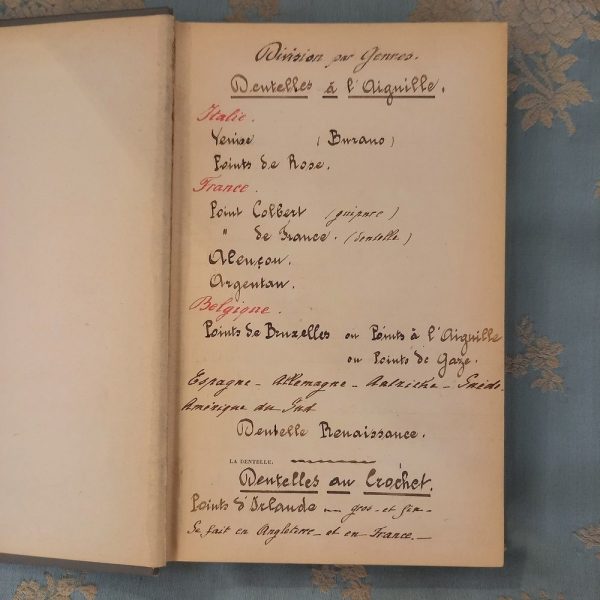 Division par Genres.
Dentelles à l'Aiguille.
Italie.
Venise (Burano)
Points de Rose.
France.
Point Colbert (guipure)
" de France. (dentelle)
Alençon.
Argentan.
Belgique.
Points de Bruxelles ou Points à l'Aiguille
ou Points de Gaze.
Espagne - Allemagne - Autriche - Suède
Amérique du Sud
Dentelle Renaissance.
LA DENTELLE.
Dentelles au Crochet.
Points d'Irlande gros - et fin -
Se fait en Angleterre - et en France. -